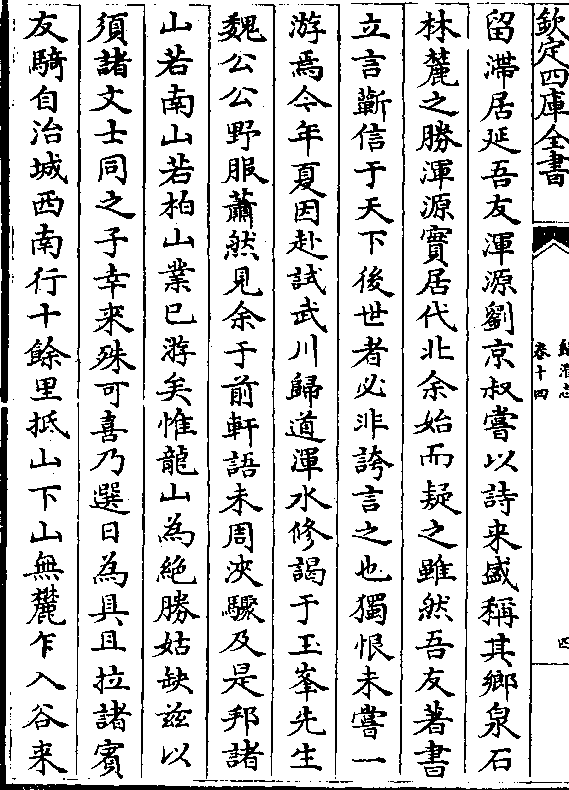 欽定四庫全書
歸潛志
卷十四
四
留滯居延吾友渾源劉京叔嘗以詩来盛稱其鄉泉石
林麓之勝渾源實居代北余始而疑之雖然吾友著書
立言蘄信于天下後世者必非誇言之也獨恨未嘗一
游焉今年夏因赴試武川歸道渾水修謁于玉峯先生
魏公公野服蕭然見余于前軒語未周浹驟及是邦諸
山若南山若柏山業已游矣惟龍山為絶勝姑缺兹以
須諸文士同之子幸来殊可喜乃選日為具且拉諸賓
友騎自治城西南行十餘里抵山下山無麓乍入谷来